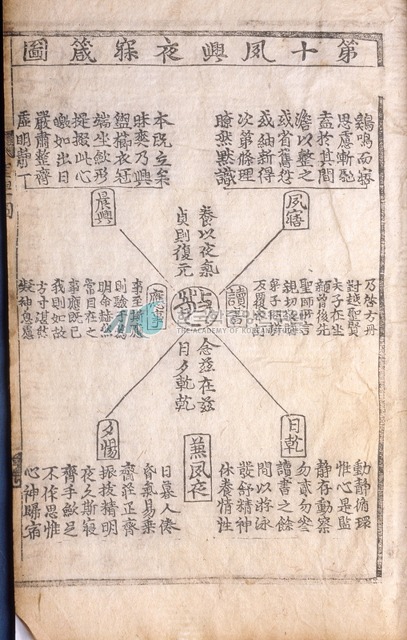 第十夙興夜寐箴圖
鷄鳴而寤
思慮漸馳
盍於其間
澹以整之
或省舊愆
或紬新得
次第條理
瞭然默識
本既立矣
昧爽乃興
盥櫛衣冠
端坐斂形
提掇此心
皦如出日
嚴肅整齊
虛明靜一
夙寤
晨興
養以夜氣
貞則復元
乃啓方冊
對越聖賢
夫子在坐
顏曾後先
聖師所言
親切敬聽
弟子問辨
反覆參訂
讀
應事
事至斯應
則驗于爲
明命赫然
常目在之
事應既已
我則如故
方寸湛然
凝神息慮
念玆在玆
日夕乾乾
日乾
兼夙夜
夕惕
動靜循環
惟心是監
靜存動察
勿貳勿參
讀書之餘
間以游泳
發舒精神
休養情性
日暮人倦
昏氣易乘
齋莊正齊
振拔精明
夜久斯寢
齊手斂足
不作思惟
心神歸宿
THE ACADEMY OF KOREAN